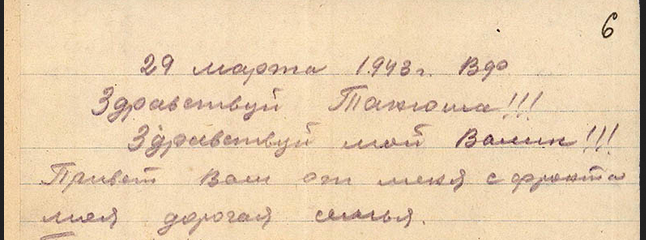 6
29 марта 1943г. Вдф
Здравствуй Танюша!!!
Здравствуй мой Валик!!!
Привет Вам от меня с фронта
моя дорогая семья.